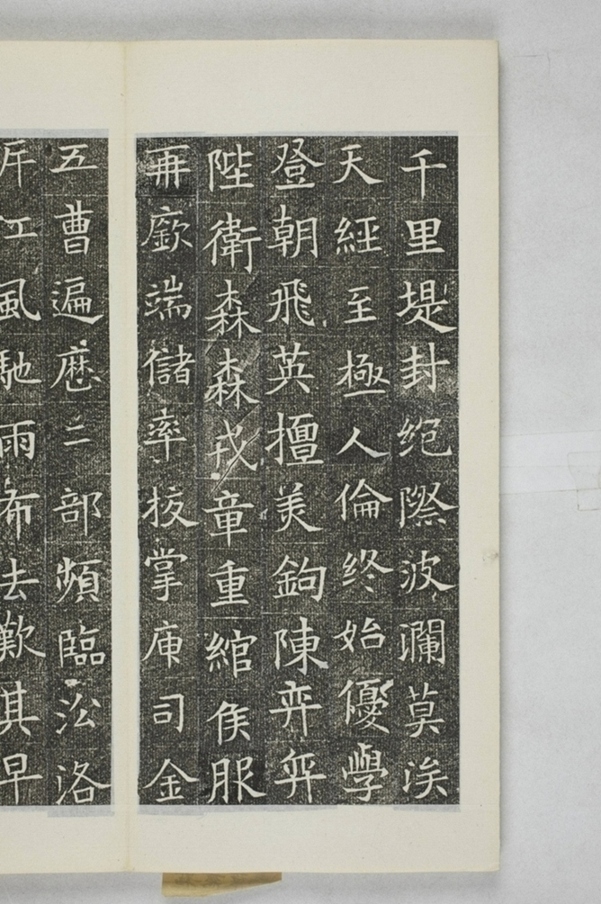 千里堤封絕際波瀾莫涘
天經至極人倫終始優學
登朝飛英擅美鉤陳弈弈
陛衛森森戎章重綰侯服
再廞端儲率拔掌庫司金
五曹遍歷二部頻臨㳂洛
江風馳雨布去歎其早